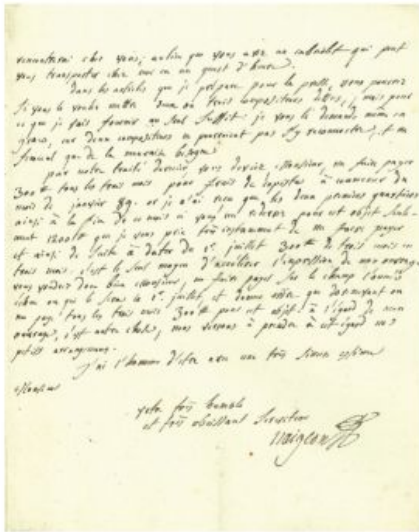 chez vous; autant que vous avez un cabriolet qui peut
vous transporter chez moi en un quart d'heure.
dans les articles que je prépare pour la presse, vous pouvez
si vous le voulez mettre deux ou trois compositeurs mais pour
ce que je vais fournir un seul suffit: je vous le demande même en
grace, car deux compositeurs ne pourroient pas s'y reconnoitre, et ne
que de la mauvaise besogne.
par notre traité dernier vous deviez Monsieur, me faire payer
300 tous les trois mois pour frais de copistes à commencer du
mois de janvier 89. or je n'ai reçu que les deux premiers quartiers
ainsi à la fin de ce mois ci vous me pour cet objet
1200 que je vous prie très instamment de me faire payer
et ainsi de suite à dater du 1er juillet 300 de trois mois en
trois mois. c'est le seul moyen d'accélérer l'impression de mon ouvrage
vous voudrez donc bien Monsieur, me faire payer sur le champ l'année
échue ou qui le sera le 1er juillet, et donner ordre que dorénavant on
me paye tous les trois mois 300 pour cet objet à l'égard de mon
ouvrage, c'est autre chose, nous verrons à prendre à cet égard nos
petits arrangemens.
j'ai l'honneur d'être avec une très sincere estime
Monsieur
votre très humble
et très obéissant serviteur
naigeon